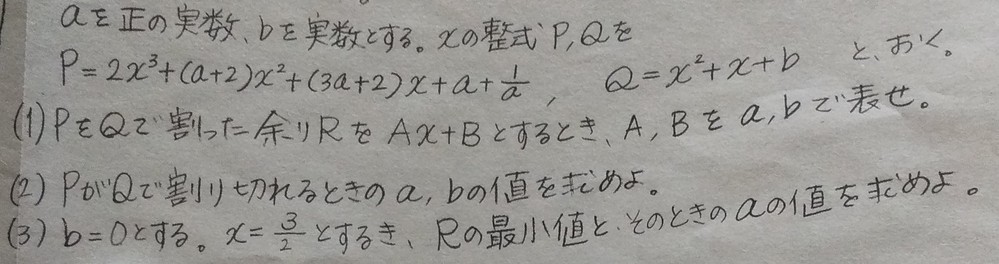 aを正の実数、bを実数とする。xの整式P,Qを
P=2x³+(a+2)x²+(3a+2)x+a+1/a, Q=x²+x+b と、おく。
(1) PをQで割った余りRをAx+Bとするとき、A,Bをa,bで表せ。
(2) PがQで割り切れるときのa,bの値を求めよ。
(3) b=0とする。x=3/2とするき、Rの最小値と、そのときのaの値を求めよ。